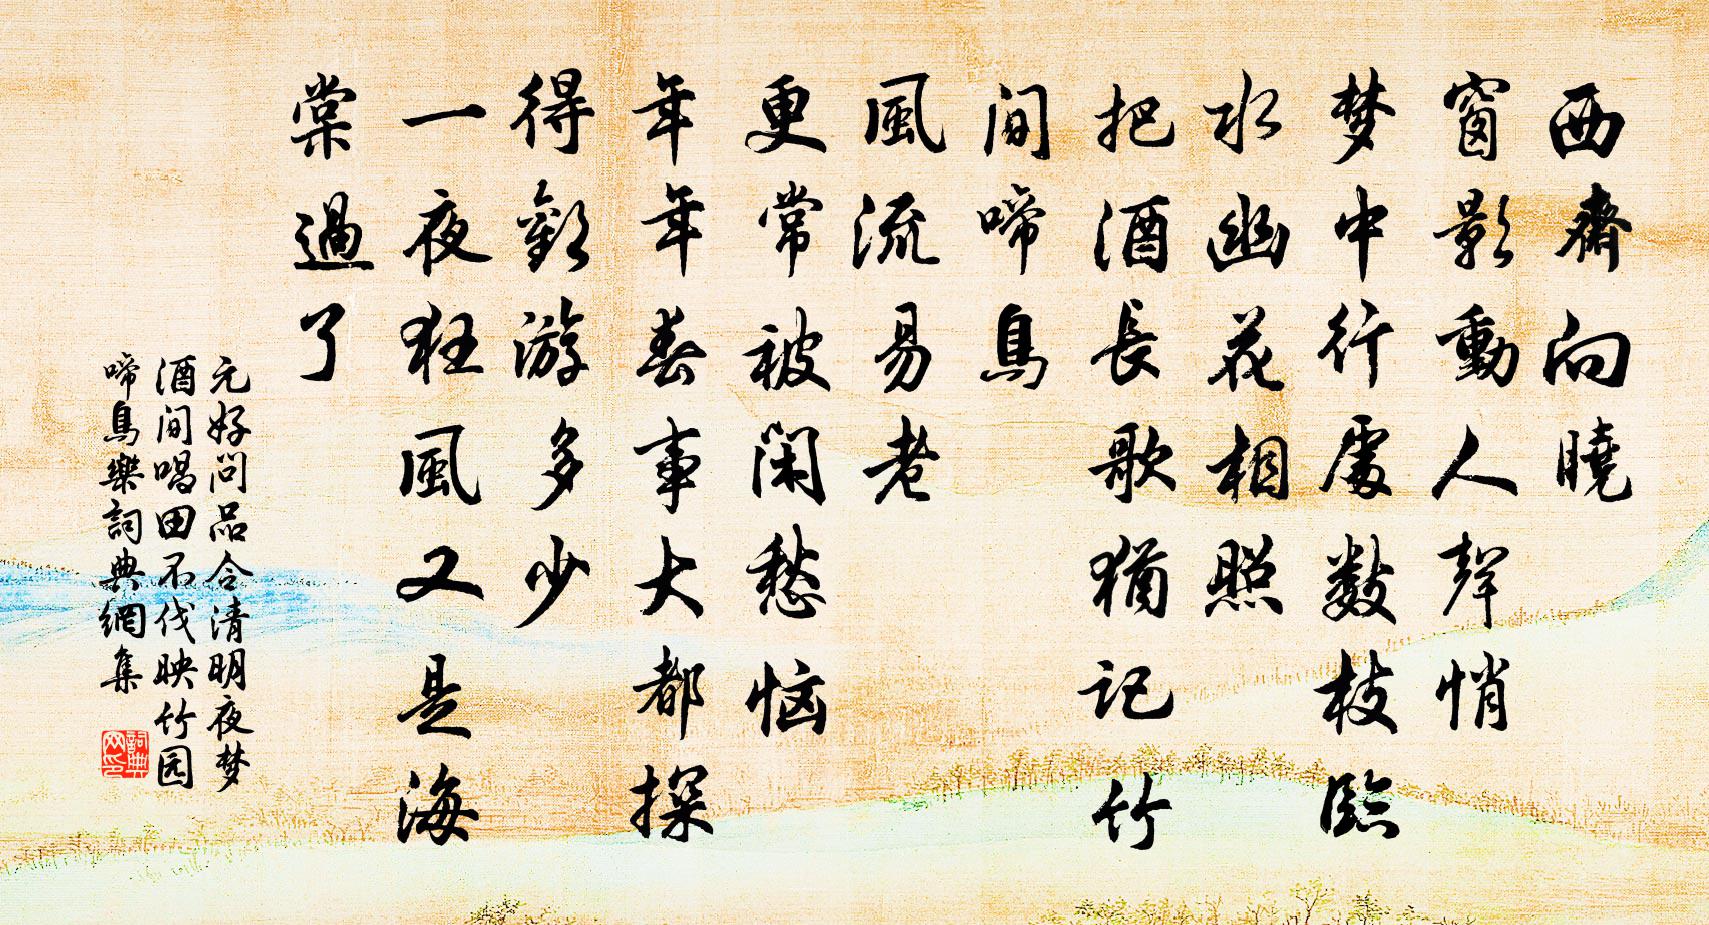 西齋向曉
窗影動人聲悄
梦中行處數枝臨
水幽花相照
把酒長歌猶記竹
間啼鳥
風流易老
更常被闲愁恼
年年春事大都探
得歡游多少
一夜狂風又是海
棠過了
元好问品令清明夜梦
酒間唱田不伐映竹园
啼鳥樂詞典網集
詞典
网印